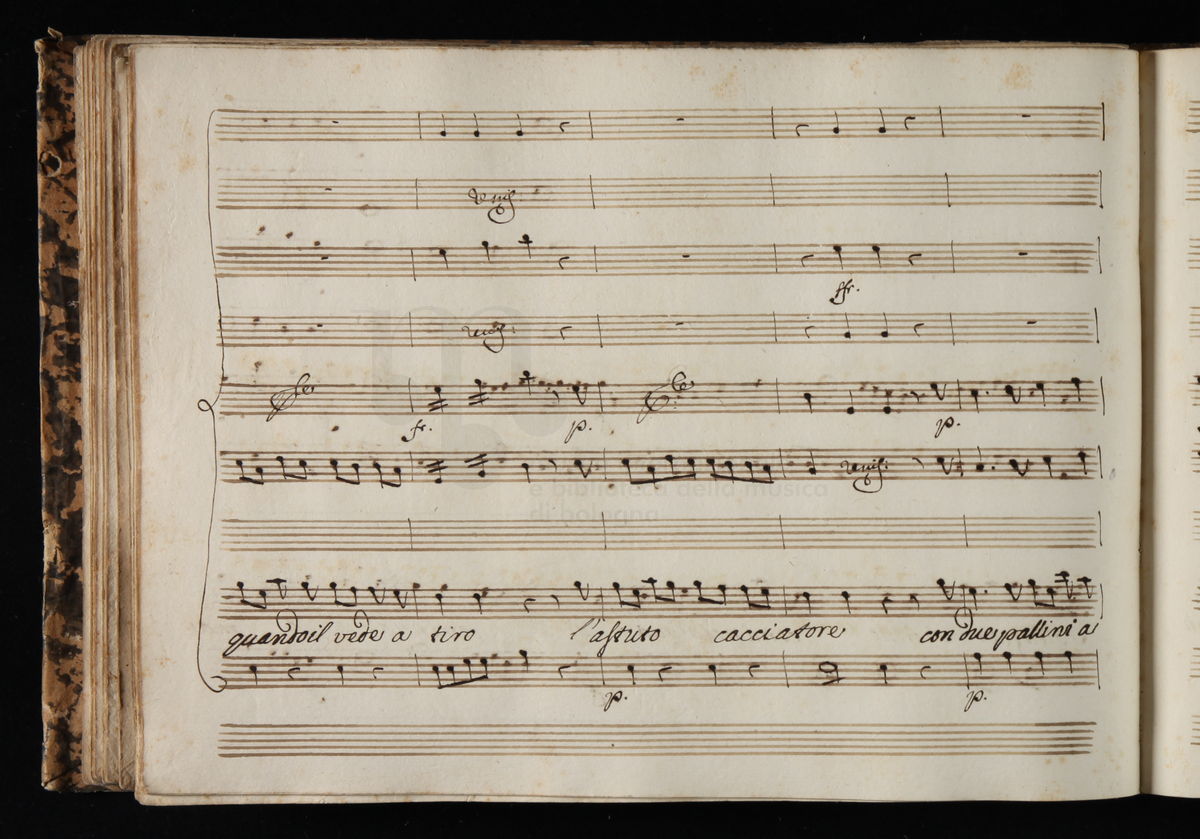 unis:
ffr.
unis:
fr. p. p.
unis:
e biblioteca della musica
di bologna
quando il vede a tiro l'astuto cacciatore con due pallini a
p. p.